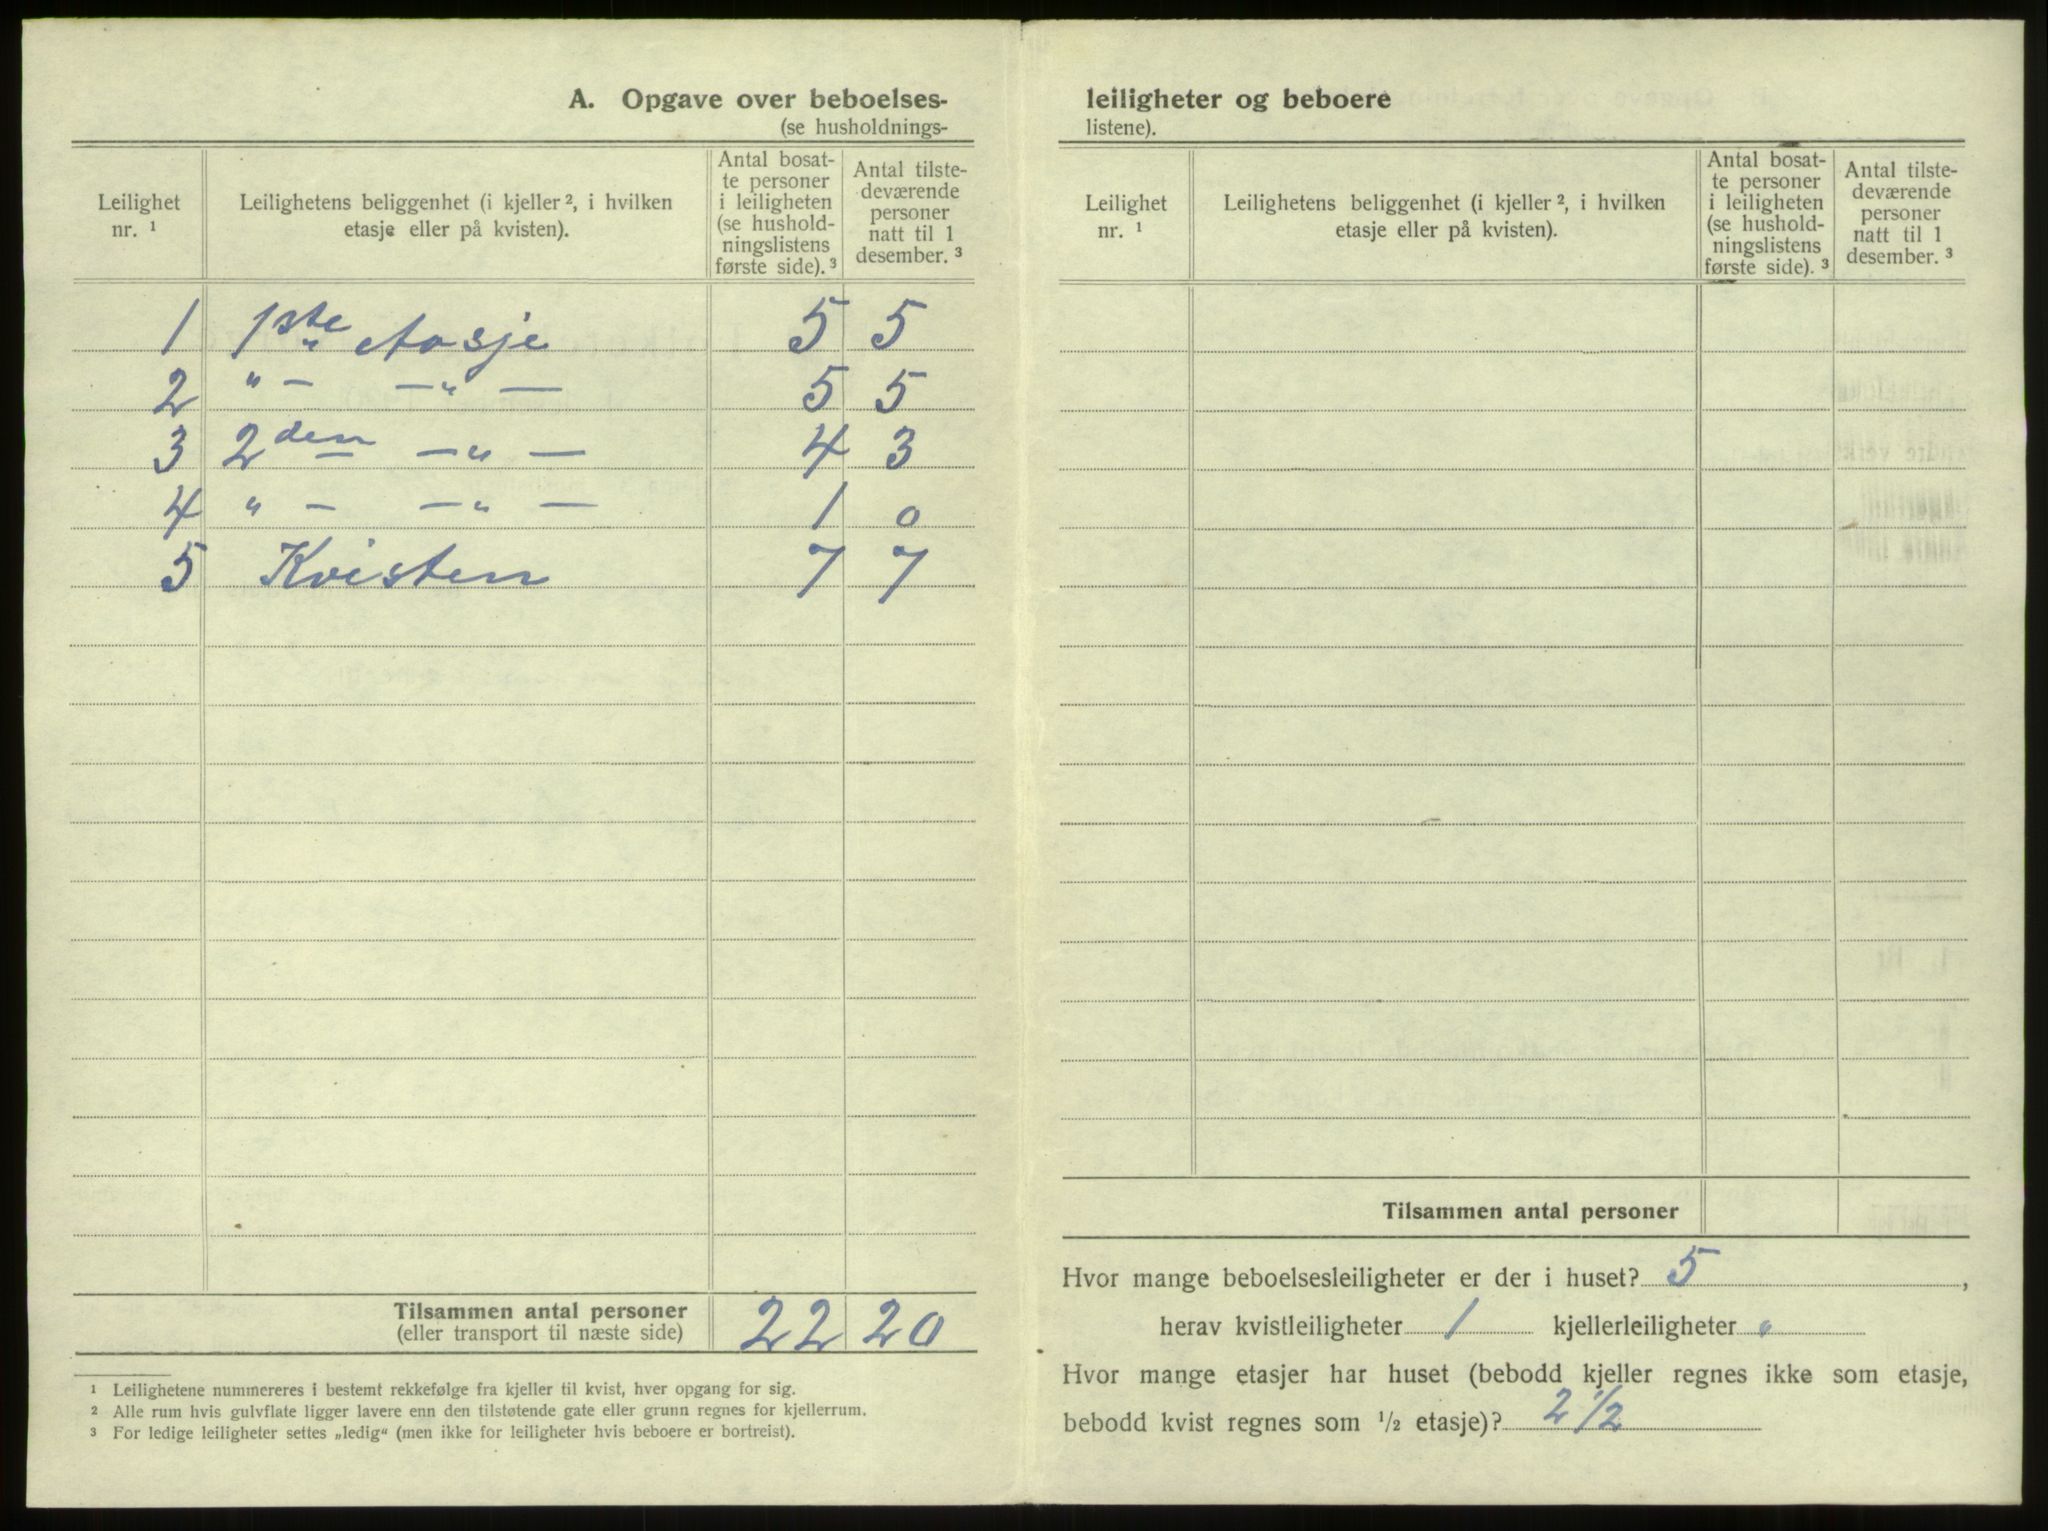 A. Opgave over beboelses-
(se husholdnings-
Leilighet nr. ¹
Leilighetens beliggenhet (i kjeller ², i hvilken etasje eller på kvisten).
Antal bosat-
te personer
i leiligheten
(se hushold-
ningslistens
første side). ³
Antal tilste-
deværende
personer
natt til 1
desember. ³
1 1ste Aasje 5 5
2 " — — " — 5 5
3 2den — — " — 4 3
4 " — — " — 1 0
5 Kvisten 7 7
Tilsammen antal personer 22 20
(eller transport til næste side)
¹ Leilighetene nummereres i bestemt rekkefølge fra kjeller til kvist, hver opgang for sig.
² Alle rum hvis gulvflate ligger lavere enn den tilstøtende gate eller grunn regnes for kjellerrum.
³ For ledige leiligheter settes „ledig“ (men ikke for leiligheter hvis beboere er bortreist).
leiligheter og beboere
listene).
Leilighet nr. ¹
Leilighetens beliggenhet (i kjeller ², i hvilken etasje eller på kvisten).
Antal bosat-
te personer
i leiligheten
(se hushold-
ningslistens
første side). ³
Antal tilste-
deværende
personer
natt til 1
desember. ³
Tilsammen antal personer
Hvor mange beboelsesleiligheter er der i huset? 5 ,
herav kvistleiligheter 1 kjellerleiligheter "
Hvor mange etasjer har huset (bebodd kjeller regnes ikke som etasje,
bebodd kvist regnes som ½ etasje)? 2 1/2